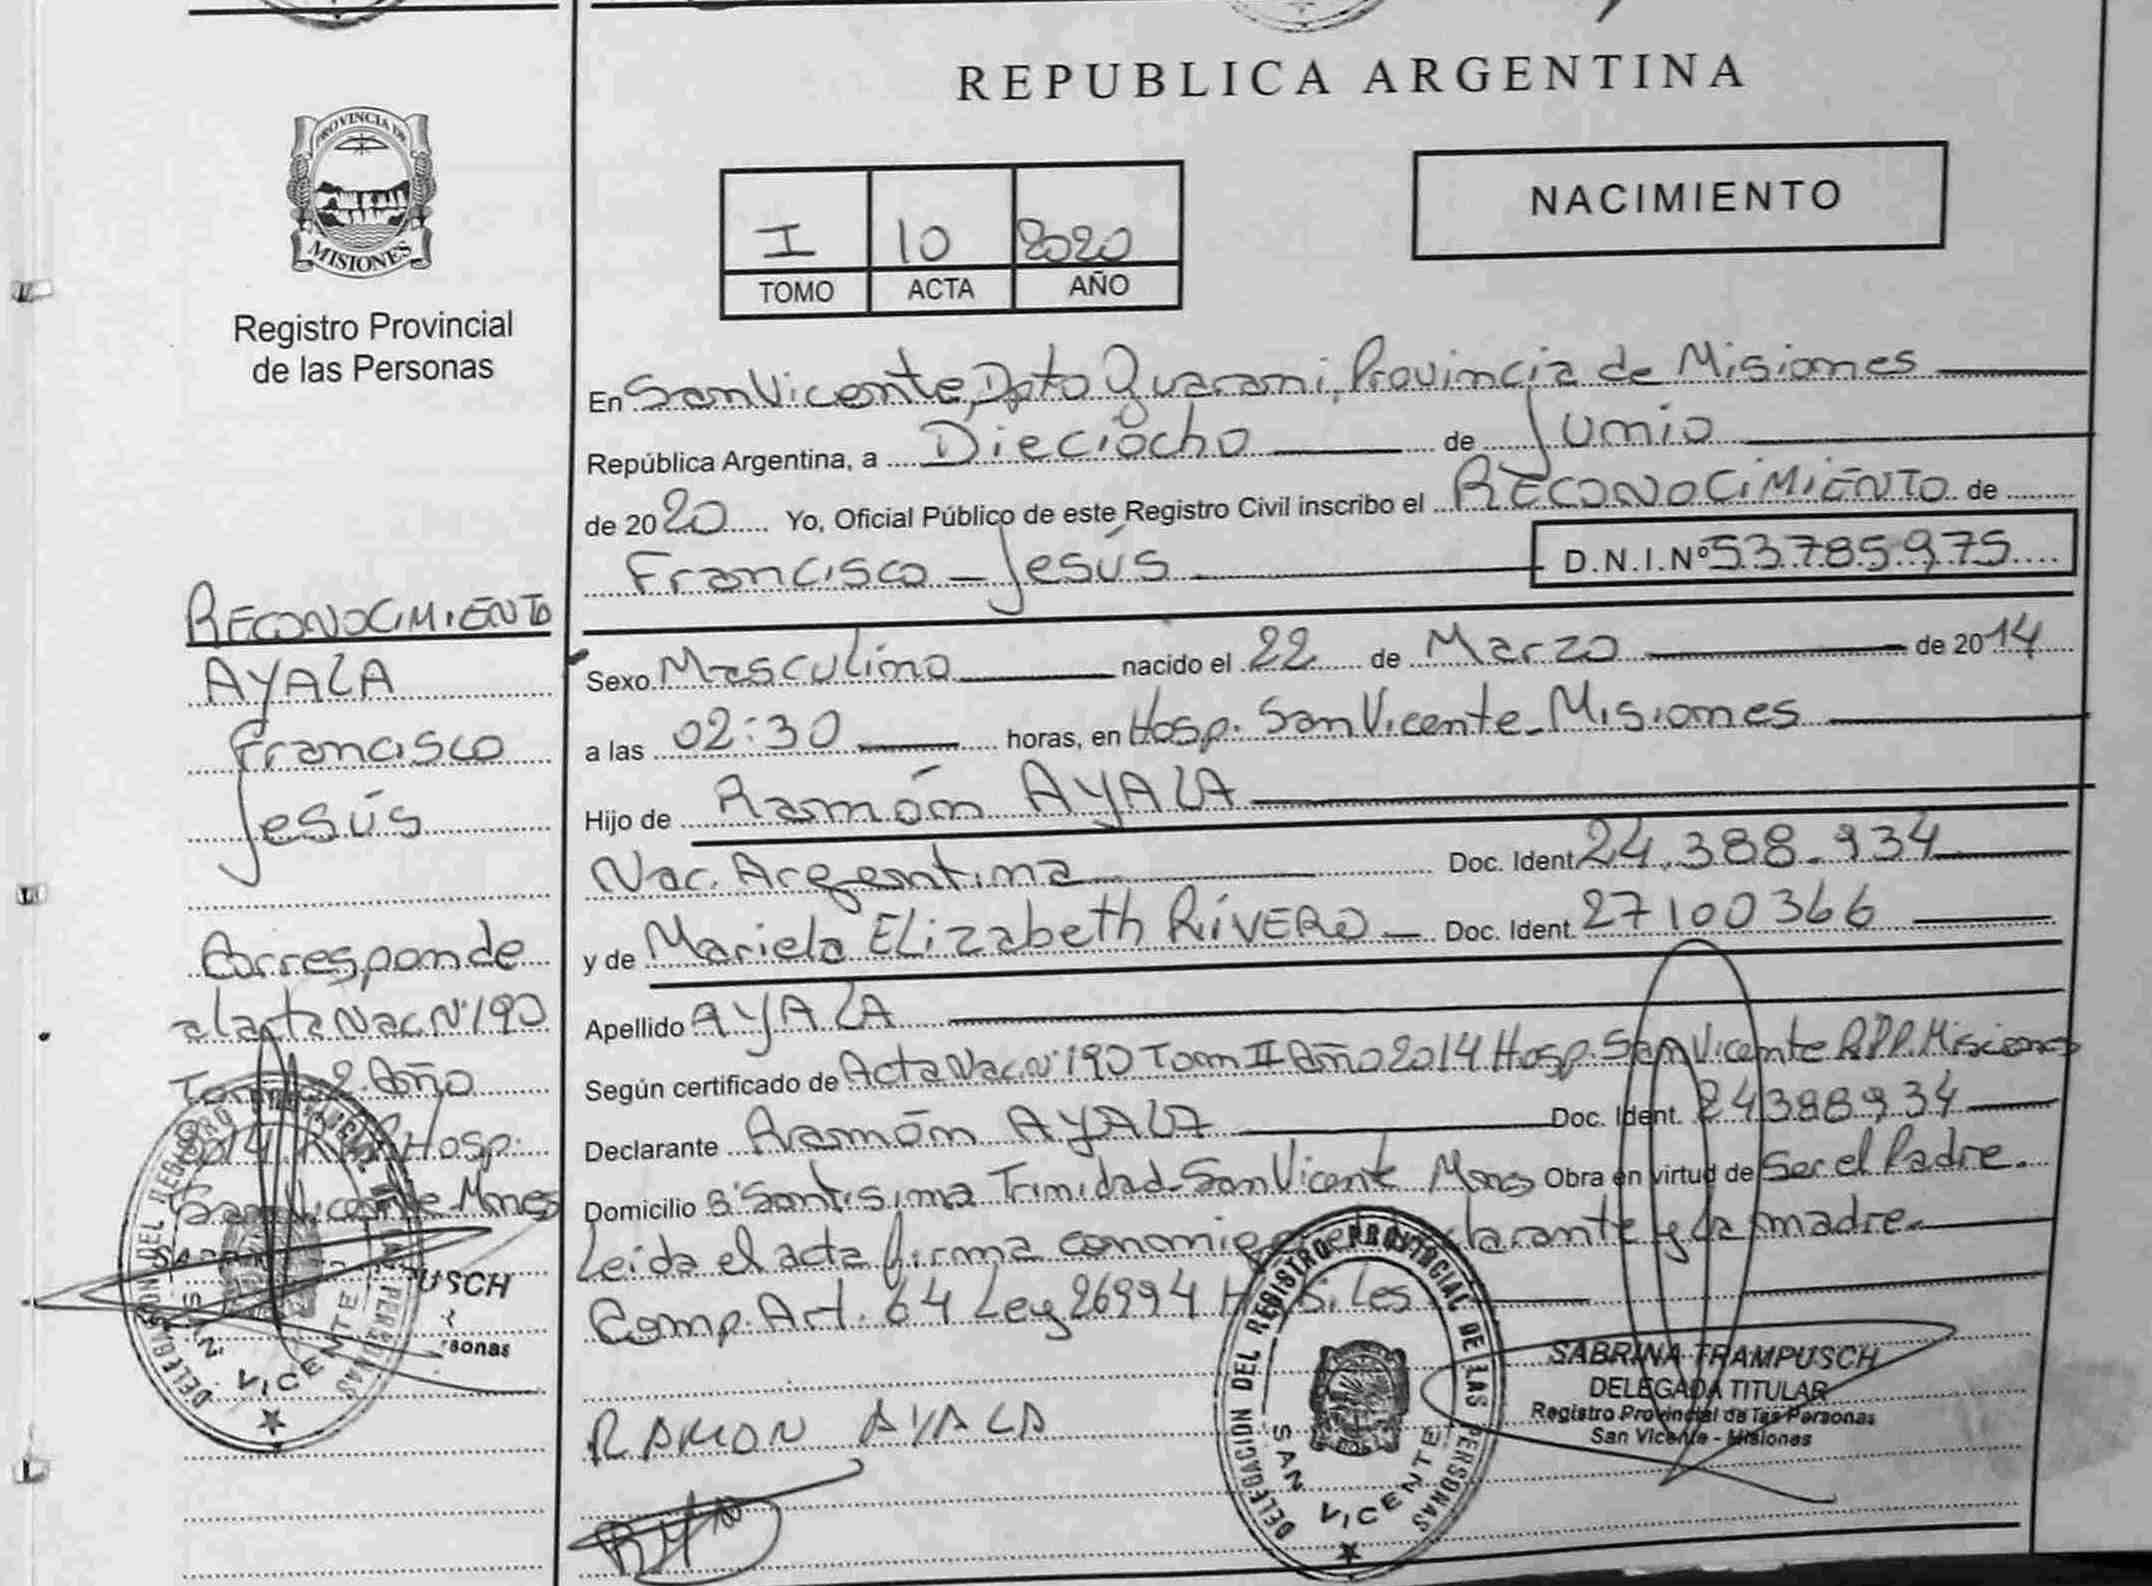 REPUBLICA ARGENTINA
PROVINCIA DE
MISIONES
Registro Provincial
de las Personas
NACIMIENTO
I 10 2020
TOMO ACTA AÑO
En San Vicente, Dpto Guarani, Provincia de Misiones
República Argentina, a Dieciocho de Junio
de 2020 Yo, Oficial Público de este Registro Civil inscribo el RECONOCIMIENTO de
Francisco Jesús D.N.I.Nº 53.785.975
Sexo Masculino nacido el 22 de Marzo de 2014
a las 02:30 horas, en Hosp. San Vicente - Misiones
Hijo de Ramón AYALA
Nac. Argentina Doc. Ident. 24.388.934
y de Mariela ELizabeth RIVERO Doc. Ident. 27100366
Apellido AYALA
Según certificado de Acta Nac. Nº 190 Tom II Año 2014 Hosp. San Vicente RPP. Misiones
Declarante Ramón AYALA Doc. Ident. 24388934
Domicilio Bº Santisima Trinidad - San Vicente Mnes Obra en virtud de Ser el Padre.
Leida el acta firma conmigo el declarante y la madre.
Comp. Art. 64 Ley 26994
RAMON AYALA
DELEGACION DEL REGISTRO PROVINCIAL DE LAS PERSONAS
SAN VICENTE
SABRINA TRAMPUSCH
DELEGADA TITULAR
Registro Provincial de las Personas
San Vicente - Misiones
RECONOCIMIENTO
AYALA
Francisco
Jesús
Corresponde
al acta Nac Nº 190
Tomo 2 Año
2014 Hosp.
San Vicente - Mnes
DELEGACION DEL REGISTRO
SAN VICENTE
USCH
sonas